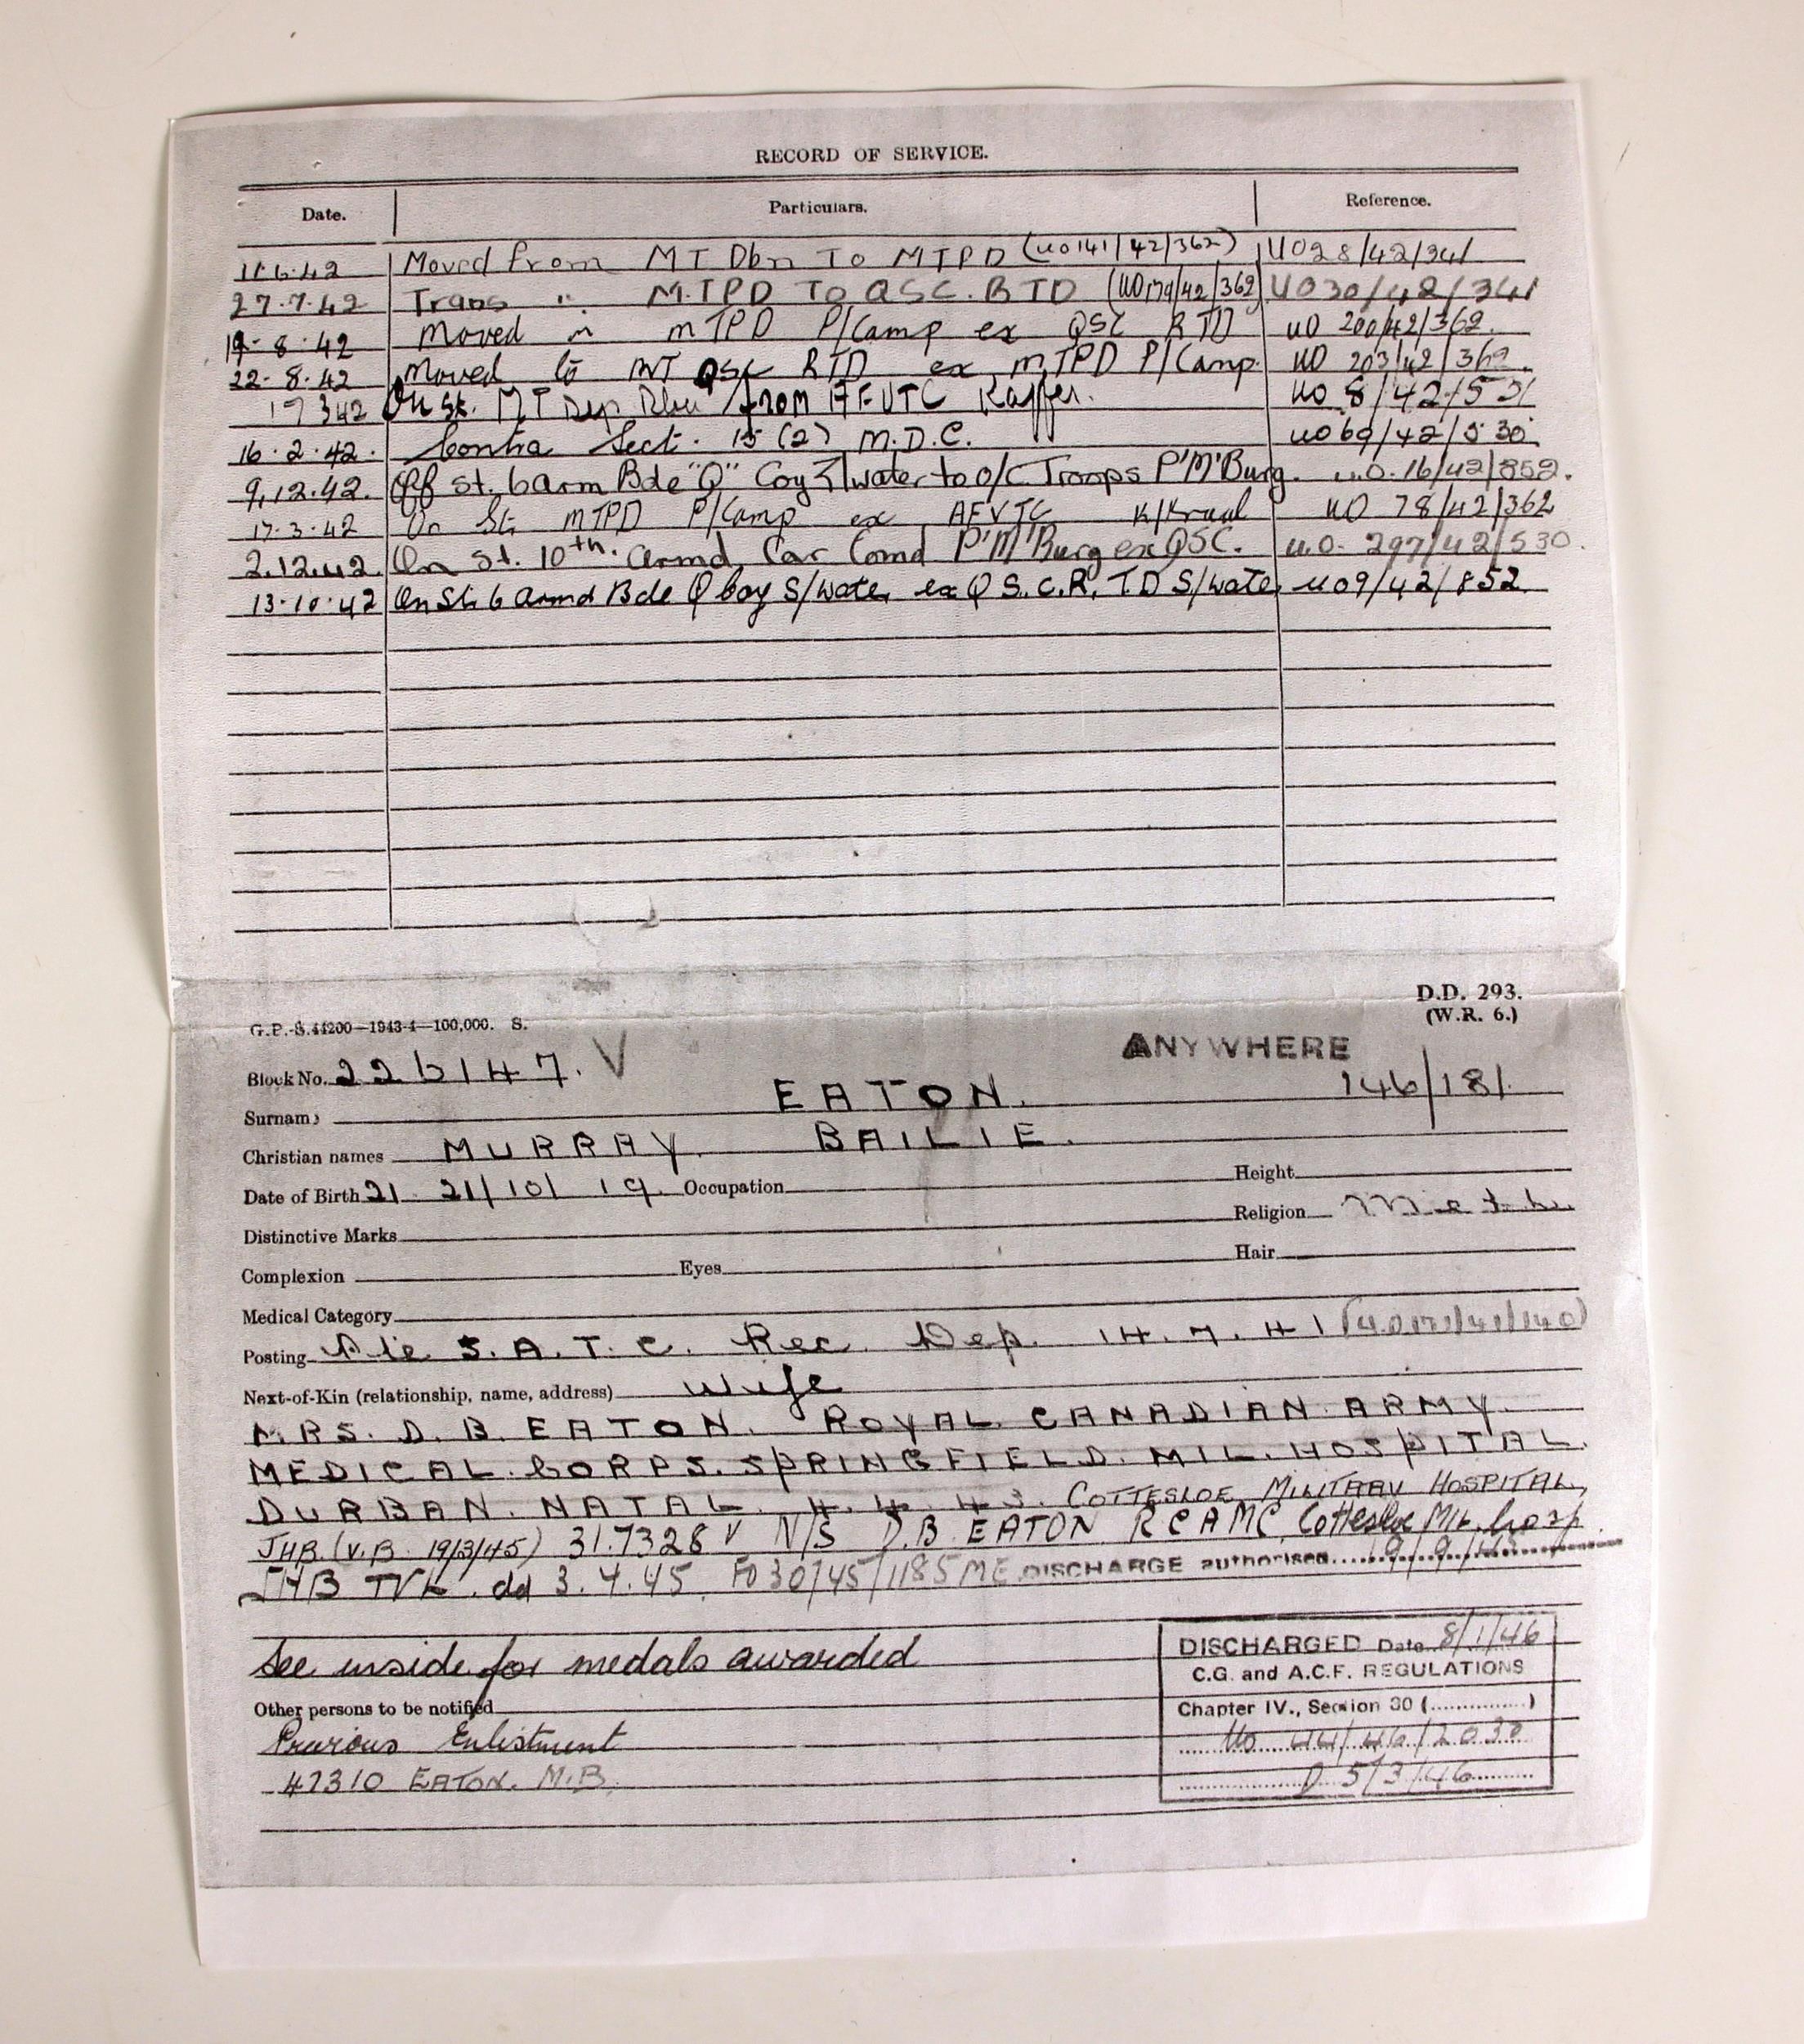 RECORD OF SERVICE.
Date. Particulars. Reference.
11.6.42 Moved from MT Dbn To MTPD (UO141/42/362) UO28/42/341
27.7.42 Trans " MTPD To QSC. RTD (UO179/42/362) UO30/42/341
19.8.42 Moved " MTPD P/Camp ex QSC RTD UO 200/42/362.
22.8.42 Moved to MT QSC RTD ex MTPD P/Camp. UO 203/42/362.
17 3 42 On St. MT Dep Dbn from AFVTC Kaffer. UO 8/42/531
16.2.42. Contra Sect. 15 (2) M.D.C. UO69/42/530.
9.12.42. Off St. 6 Arm Bde "Q" Coy S/water to O/C Troops P'M'Burg. U.O. 16/42/852.
17.3.42 On St. MTPD P/Camp ex AFVTC K/Kraal UO 78/42/362
2.12.42. On St. 10th. Armd Car Comd P'M'Burg ex QSC. U.O. 297/42/530.
13.10.42 On St. 6 Armd Bde Q Coy S/Water ex Q S.C.R.T.D S/Water UO9/42/852.
G.P.-S.44200—1943-4—100,000. S.
D.D. 293.
(W.R. 6.)
ANYWHERE
Block No. 226147. V
146/181.
Surname EATON.
Christian names MURRAY. BAILIE.
Date of Birth 21 21/10/19. Occupation Height
Distinctive Marks Religion Meth.
Complexion Eyes Hair
Medical Category
Posting Pte S.A.T.C. Rec. Dep. 14.7.41
Next-of-Kin (relationship, name, address) Wife
MRS. D. B. EATON. ROYAL CANADIAN ARMY.
MEDICAL CORPS. SPRINGFIELD. MIL. HOSPITAL.
DURBAN. NATAL. 4.4.43. COTTESLOE MILITARY HOSPITAL,
JHB. (V.B. 19/3/45) 317328 V N/S D.B EATON RCAMC Cottesloe Mil. Hosp.
JHB TVL. dd 3.4.45. FO30/45/1185ME DISCHARGE authorised
See inside for medals awarded
Other persons to be notified
Previous Enlistment
47310 EATON. M.B.
DISCHARGED Date 8/1/46
C.G. and A.C.F. REGULATIONS
Chapter IV., Section 30 (...............)
UO 44/46/2030
D 5/3/46